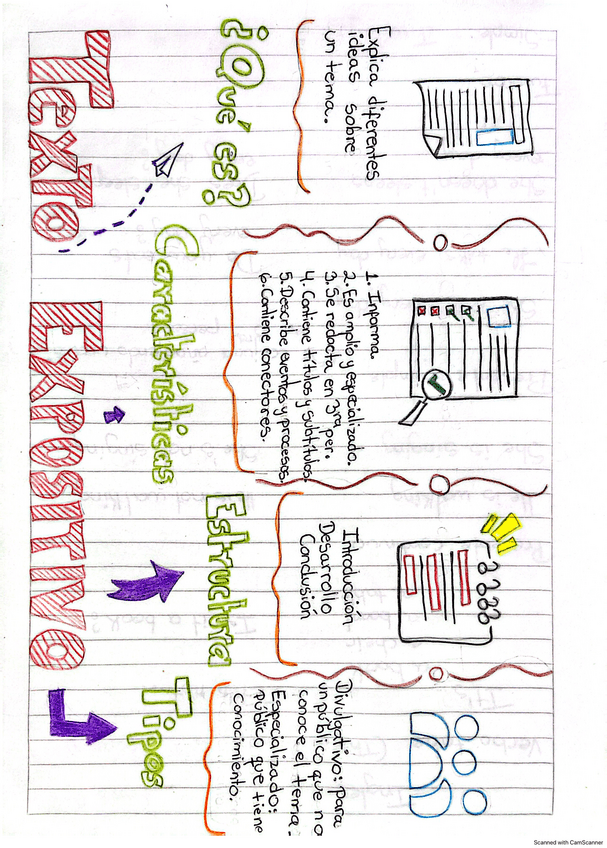 TEXTO EXPOSITIVO
¿Qué es?
Explica diferentes
ideas sobre
un tema.
Características
1. Informa.
2. Es amplio y especializado.
3. Se redacta en 3ra per.
4. Contiene títulos y subtítulos.
5. Describe eventos y procesos.
6. Contiene conectores.
Estructura
Introducción
Desarrollo
Conclusión
Tipos
Divulgativo: para
un público que no
conoce el tema.
Especializado:
público que tiene
conocimiento.
Scanned with CamScanner